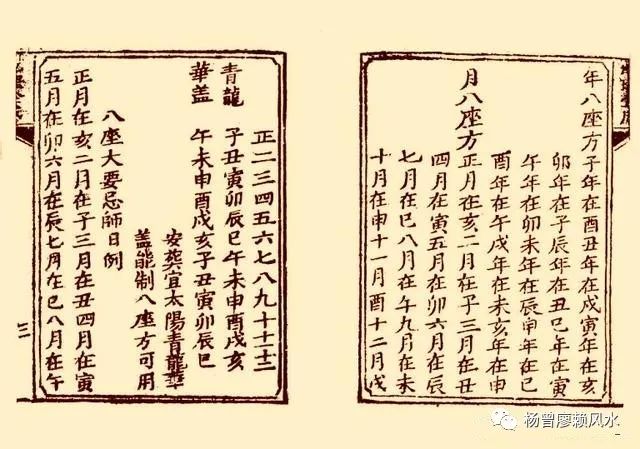 年八座方子年在酉丑年在戌寅年在亥
卯年在子辰年在丑巳年在寅
午年在卯未年在辰申年在巳
酉年在午戌年在未亥年在申
月八座方
正月在亥二月在子三月在丑
四月在寅五月在卯六月在辰
七月在巳八月在午九月在未
十月在申十一月酉十二月戌
正二三四五六七八九十十一十二
青龍 子丑寅卯辰巳午未申酉戌亥
華盖 午未申酉戌亥子丑寅卯辰巳
安葬宜太陽青龍華
盖能制八座方可用
八座大要忌師日例
正月在亥二月在子三月在丑四月在寅
五月在卯六月在辰七月在巳八月在午
杨曾廖赖风水